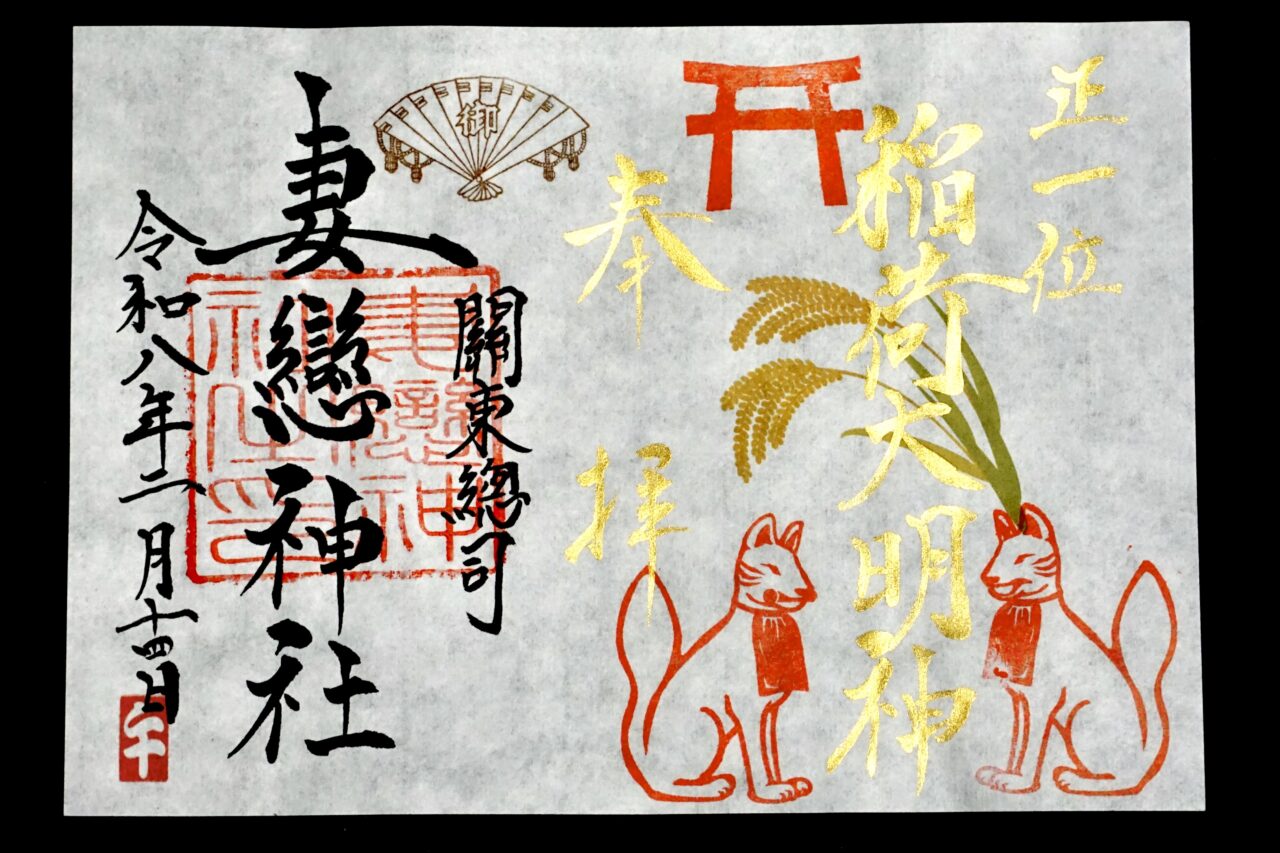 正一位
稲荷大明神
奉拝
御
關東總司
妻戀神社
妻戀神社之印
令和八年二月十四日
午